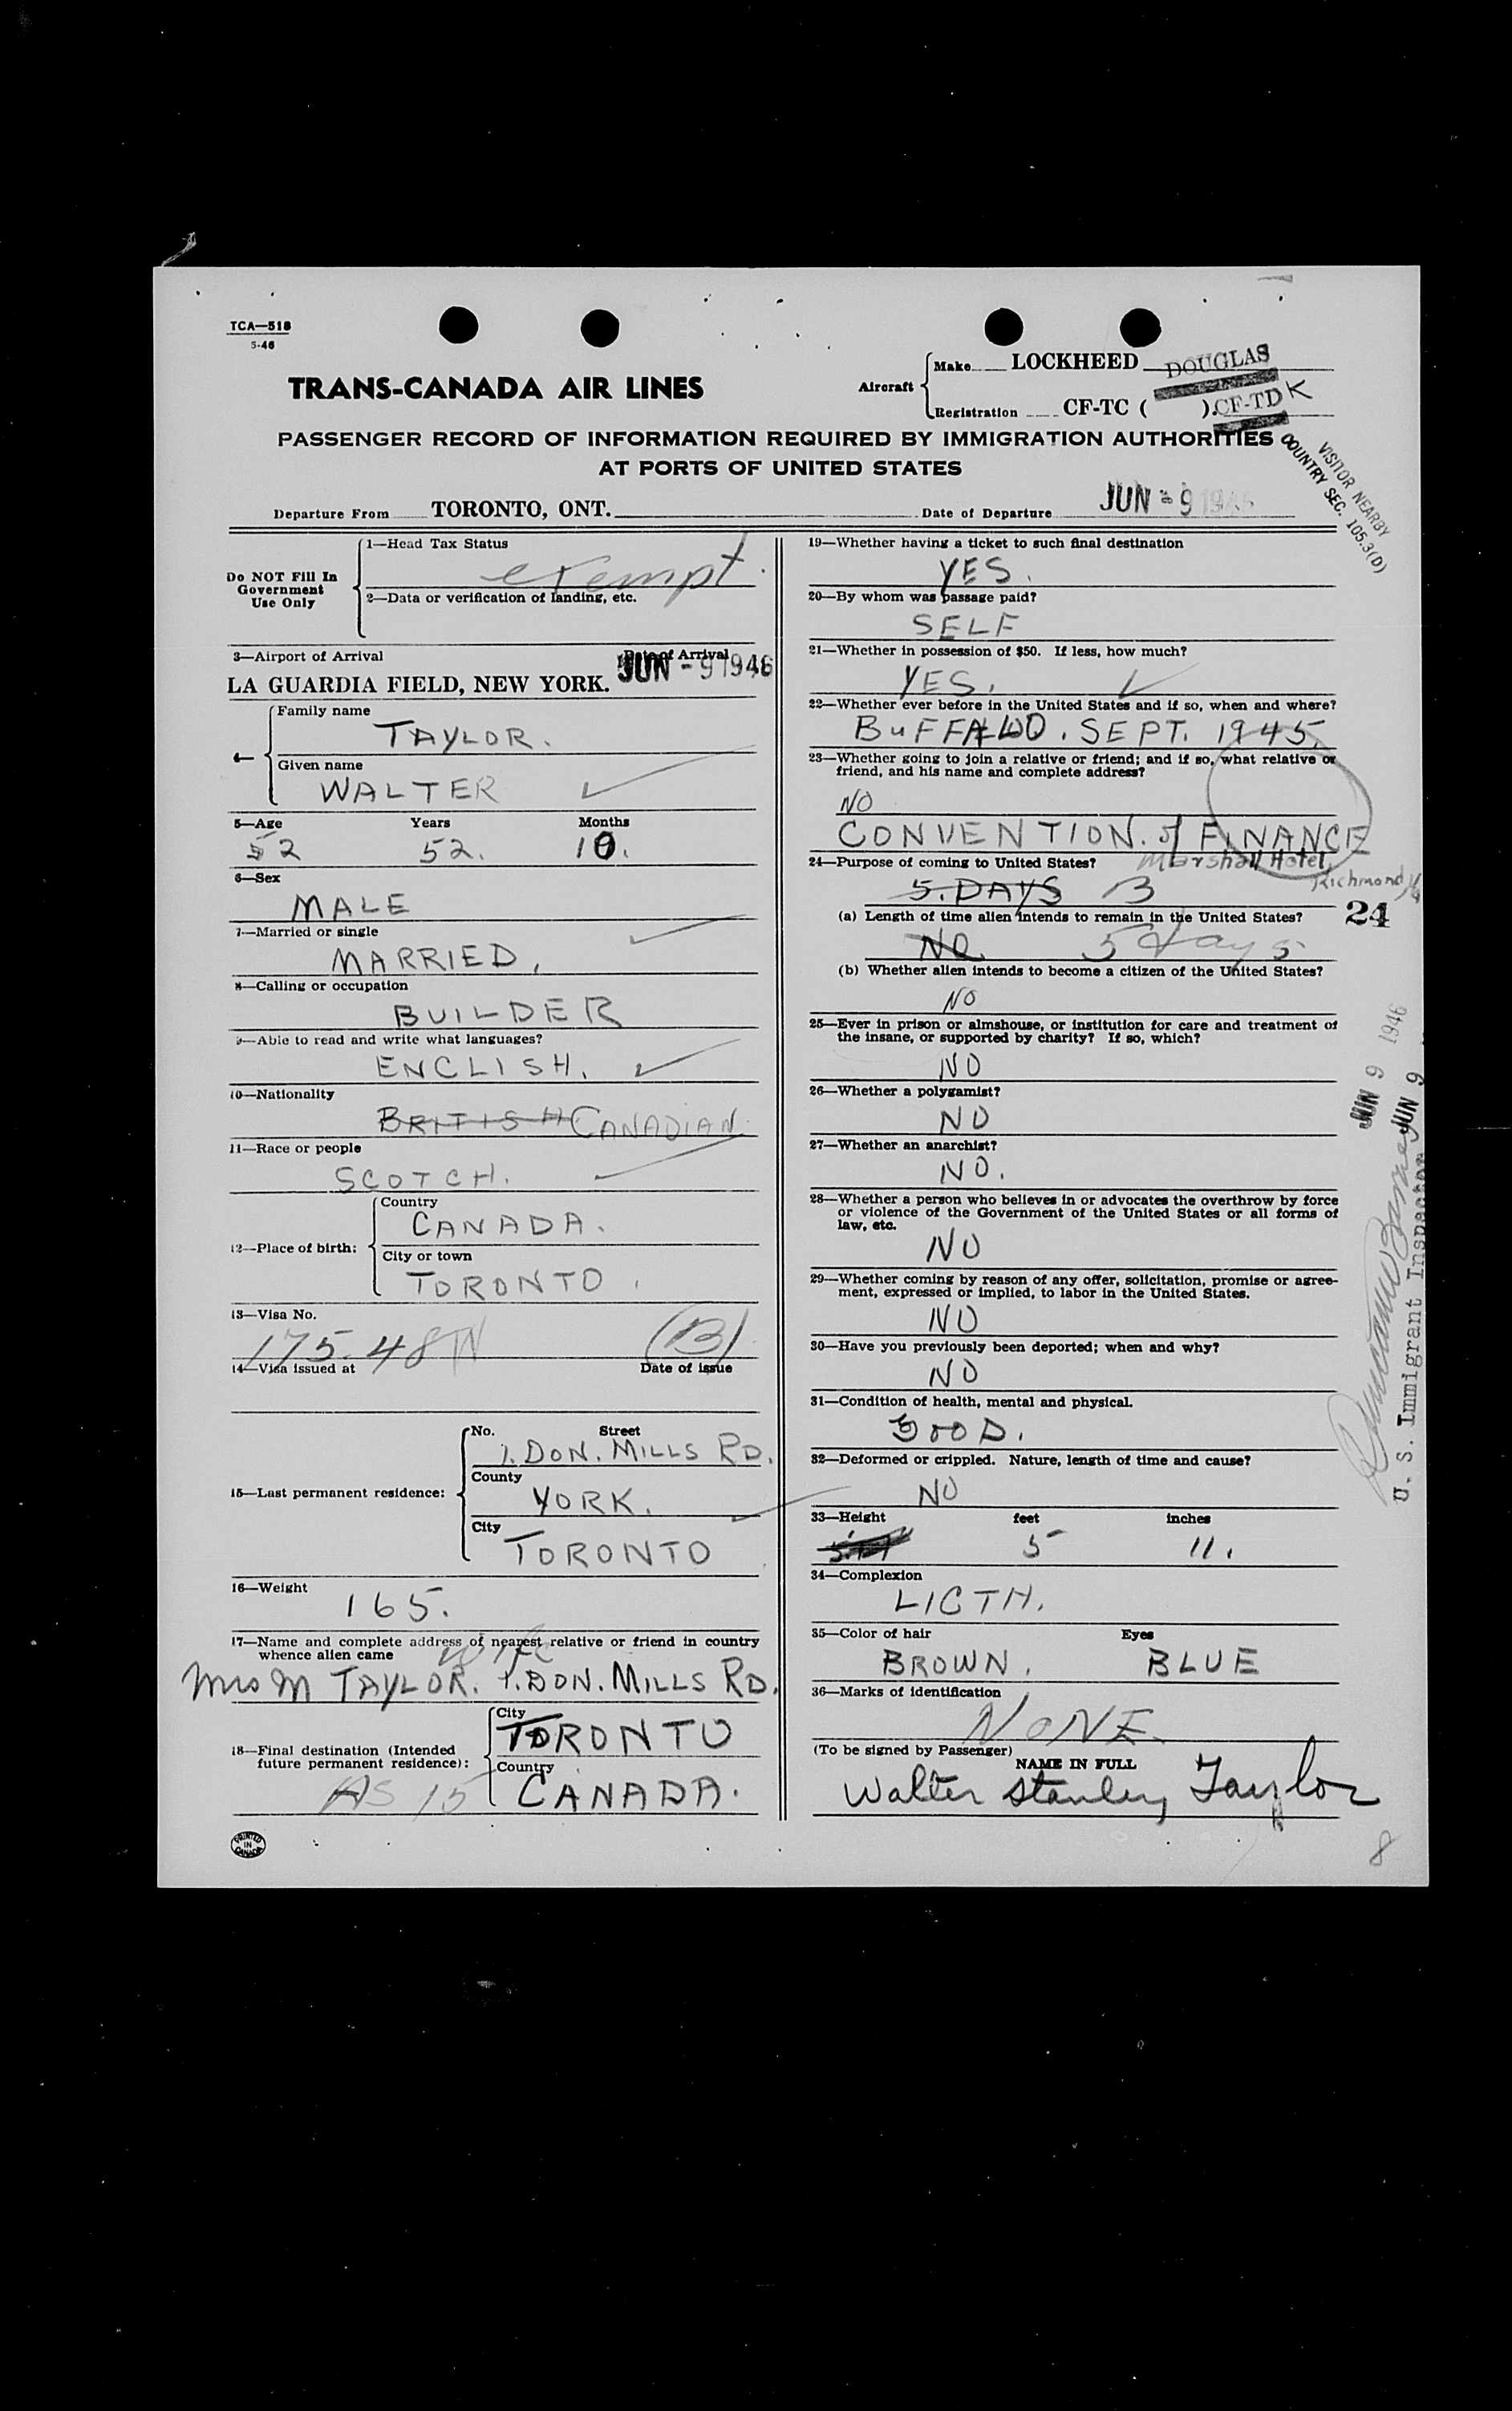 TCA—518
5-46
TRANS-CANADA AIR LINES
Aircraft
Make LOCKHEED DOUGLAS
Registration CF-TC ( ). CF-TD K
PASSENGER RECORD OF INFORMATION REQUIRED BY IMMIGRATION AUTHORITIES
AT PORTS OF UNITED STATES
VISITOR NEARBY
COUNTRY SEC. 105.3(D)
Departure From TORONTO, ONT. Date of Departure JUN - 9 1946
Do NOT Fill In
Government
Use Only
1—Head Tax Status
exempt
2—Data or verification of landing, etc.
3—Airport of Arrival Date of Arrival
LA GUARDIA FIELD, NEW YORK. JUN - 9 1946
4—
Family name
TAYLOR.
Given name
WALTER
5—Age Years Months
52 52. 10.
6—Sex
MALE
7—Married or single
MARRIED,
8—Calling or occupation
BUILDER
9—Able to read and write what languages?
ENCLISH.
10—Nationality
BRITISH CANADIAN
11—Race or people
SCOTCH.
12—Place of birth:
Country
CANADA.
City or town
TORONTO.
13—Visa No.
175.48 (B)
14—Visa issued at Date of issue
15—Last permanent residence:
No. Street
1. DON. MILLS RD.
County
YORK.
City
TORONTO
16—Weight
165.
17—Name and complete address of nearest relative or friend in country
whence alien came wife
Mrs M TAYLOR. 1. DON. MILLS RD.
18—Final destination (Intended
future permanent residence):
City
TORONTO
Country
CANADA.
AS 15
PRINTED
IN
CANADA
19—Whether having a ticket to such final destination
YES.
20—By whom was passage paid?
SELF
21—Whether in possession of $50. If less, how much?
YES.
22—Whether ever before in the United States and if so, when and where?
BUFFALO. SEPT. 1945.
23—Whether going to join a relative or friend; and if so, what relative or
friend, and his name and complete address?
NO
CONVENTION. of FINANCE
24—Purpose of coming to United States? Marshall Hotel,
Richmond,
5. DAYS B
24
(a) Length of time alien intends to remain in the United States?
NO 5 days
(b) Whether alien intends to become a citizen of the United States?
NO
25—Ever in prison or almshouse, or institution for care and treatment of
the insane, or supported by charity? If so, which?
NO
26—Whether a polygamist?
NO
27—Whether an anarchist?
NO.
28—Whether a person who believes in or advocates the overthrow by force
or violence of the Government of the United States or all forms of
law, etc.
NO
29—Whether coming by reason of any offer, solicitation, promise or agree-
ment, expressed or implied, to labor in the United States.
NO
30—Have you previously been deported; when and why?
NO
31—Condition of health, mental and physical.
GOOD.
32—Deformed or crippled. Nature, length of time and cause?
NO
33—Height feet inches
5 11.
34—Complexion
LICTH.
35—Color of hair Eyes
BROWN. BLUE
36—Marks of identification
NONE.
(To be signed by Passenger)
NAME IN FULL
Walter Stanley Taylor
JUN 9 1946
JUN 9
U. S. Immigrant Inspector
8